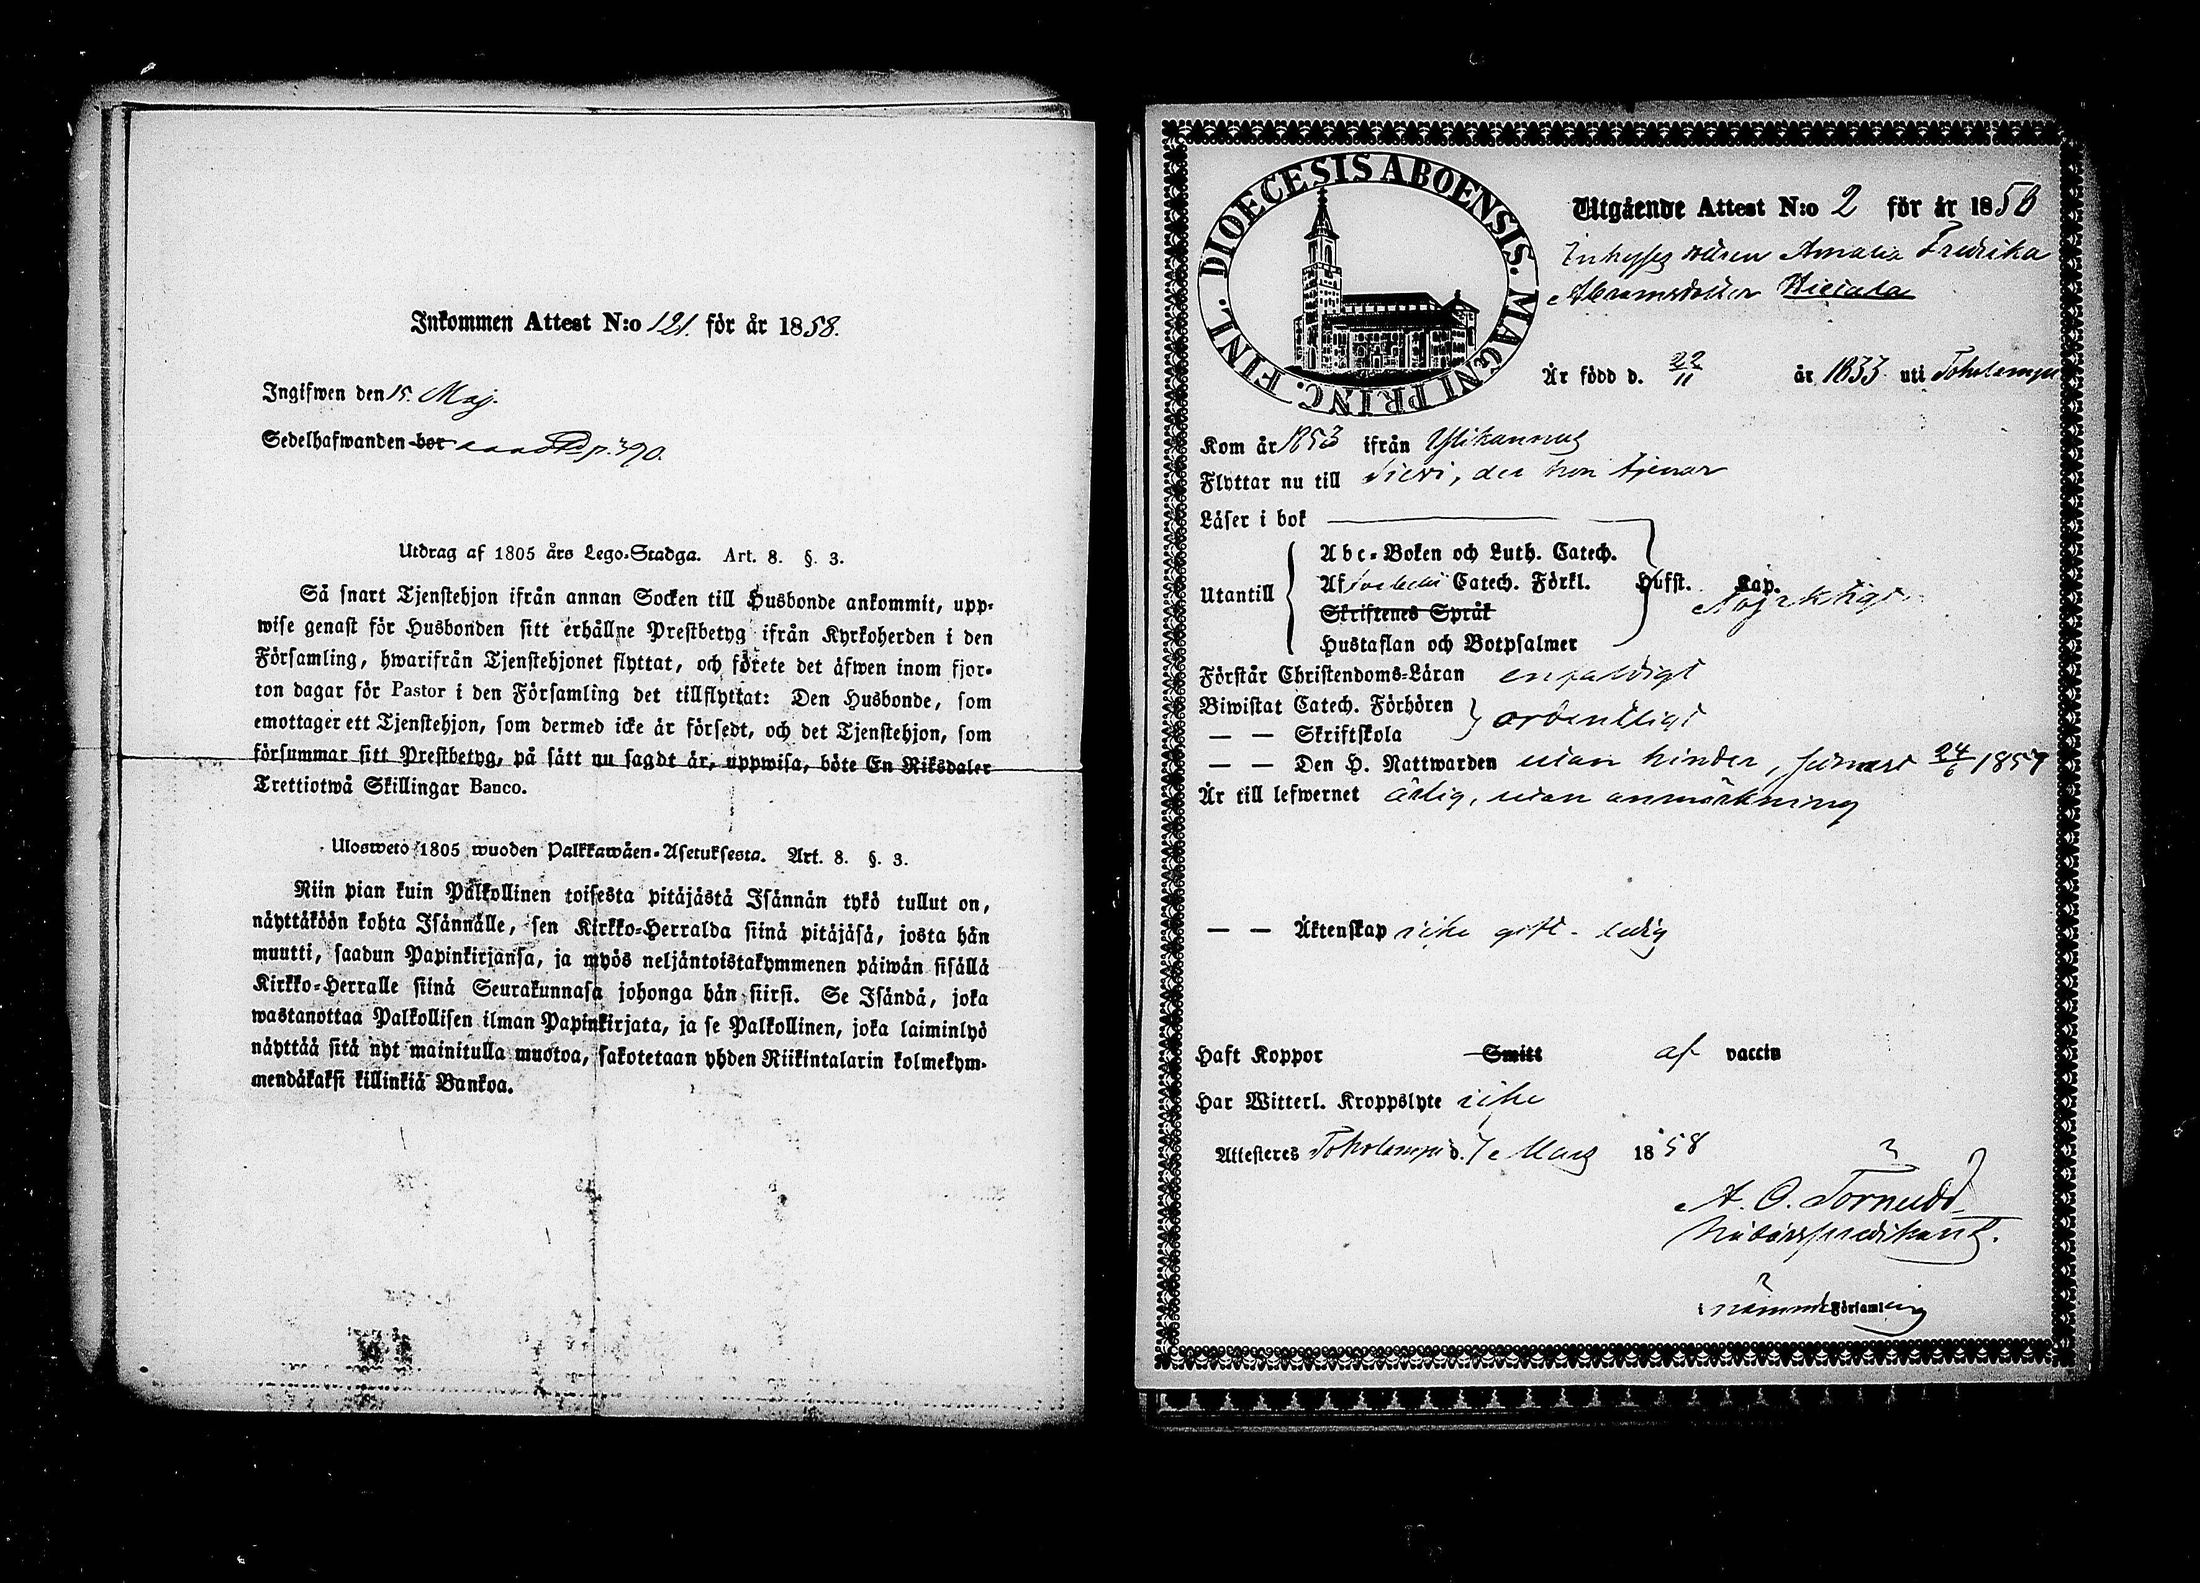 Inkommen Attest N:o 121. för år 1858.
Ingifwen den 15. Maj.
Sedelhafwanden bor p. 390.
Utdrag af 1805 års Lego-Stadga. Art. 8. §. 3.
Så snart Tjenstehjon ifrån annan Socken till Husbonde ankommit, upp-
wise genast för Husbonden sitt erhållne Prestbetyg ifrån Kyrkoherden i den
Församling, hwarifrån Tjenstehjonet flyttat, och förete det äfwen inom fjor-
ton dagar för Pastor i den Församling det tillflyttat: Den Husbonde, som
emottager ett Tjenstehjon, som dermed icke är försedt, och det Tjenstehjon, som
försummar sitt Prestbetyg, på sätt nu sagdt är, uppwisa, böte En Riksdaler
Trettiotwå Skillingar Banco.
Ulosweto 1805 wuoden Palkkawäen-Asetuksesta. Art. 8. §. 3.
Niin pian kuin Palkollinen toisesta pitäjästä Isännän tykö tullut on,
näyttäköön kohta Isännälle, sen Kirkko-Herralda siinä pitäjäsä, josta hän
muutti, saadun Papinkirjansa, ja myös neljäntoistakymmenen päiwän sisällä
Kirkko-Herralle siinä Seurakunnasa johonga hän siirsi. Se Isändä, joka
wastanottaa Palkollisen ilman Papinkirjata, ja se Palkollinen, joka laiminlyö
näyttää sitä nyt mainitulla muotoa, sakotetaan yhden Riikintalarin kolmekym-
mendäkaksi killinkiä Bankoa.
DIOECESIS ABOENSIS. MAGNI PRINC. FINL.
Utgående Attest N:o 2 för år 1858
Inhyses Amalia Fredrika
Abramsdotter
Är född d. 22/11 år 1833 uti Toholampi
Kom år 1853 ifrån Ylikannus
Flyttar nu till Sievi, der hon tjenar
Läser i bok
Abc-Boken och Luth. Catech.
Utantill Af Svebelii Catech. Förkl. Hufst. Kap. Nöjaktigt
Skriftenes Språk
Hustaflan och Botpsalmer
Förstår Christendoms-Läran enfaldigt
Biwistat Catech. Förhören ordentligt
— — Skriftskola
— — Den H. Nattwarden utan hinder, senast 24/6 1857
Är till lefwernet ärlig, utan anmärkning
— — Äktenskap icke gift - ledig
Haft Koppor Smitt af vaccin
Har Witterl. Kroppslyte icke
Attesteres Toholampi d. 7 Mars 1858
A. O. Törnudd
Nådårspredikant.
nämnde Församling